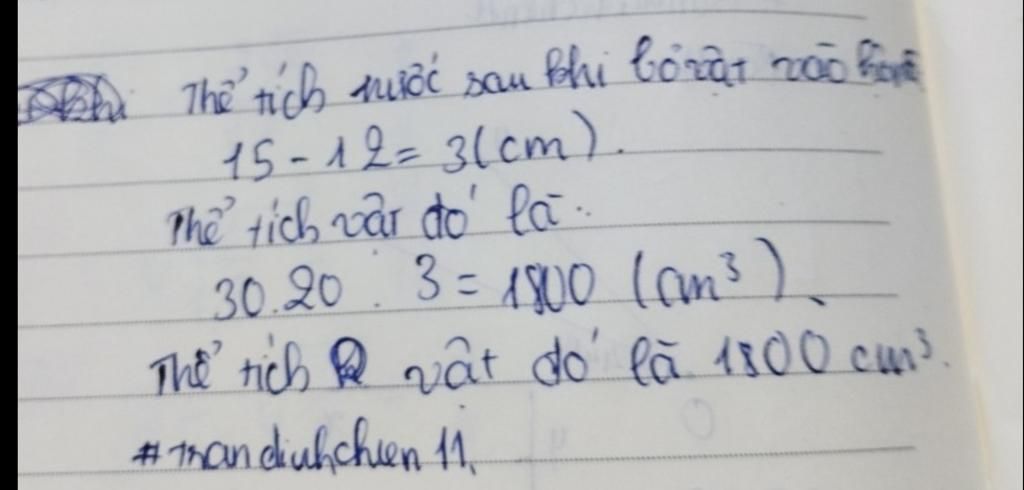 Thể tích nước sau khi bỏ vật vào
15 - 12 = 3 (cm).
Thể tích vật đó là:
30.20 . 3 = 1800 (cm³).
Thể tích vật đó là 1800 cm³.
#trandinhchien 11.